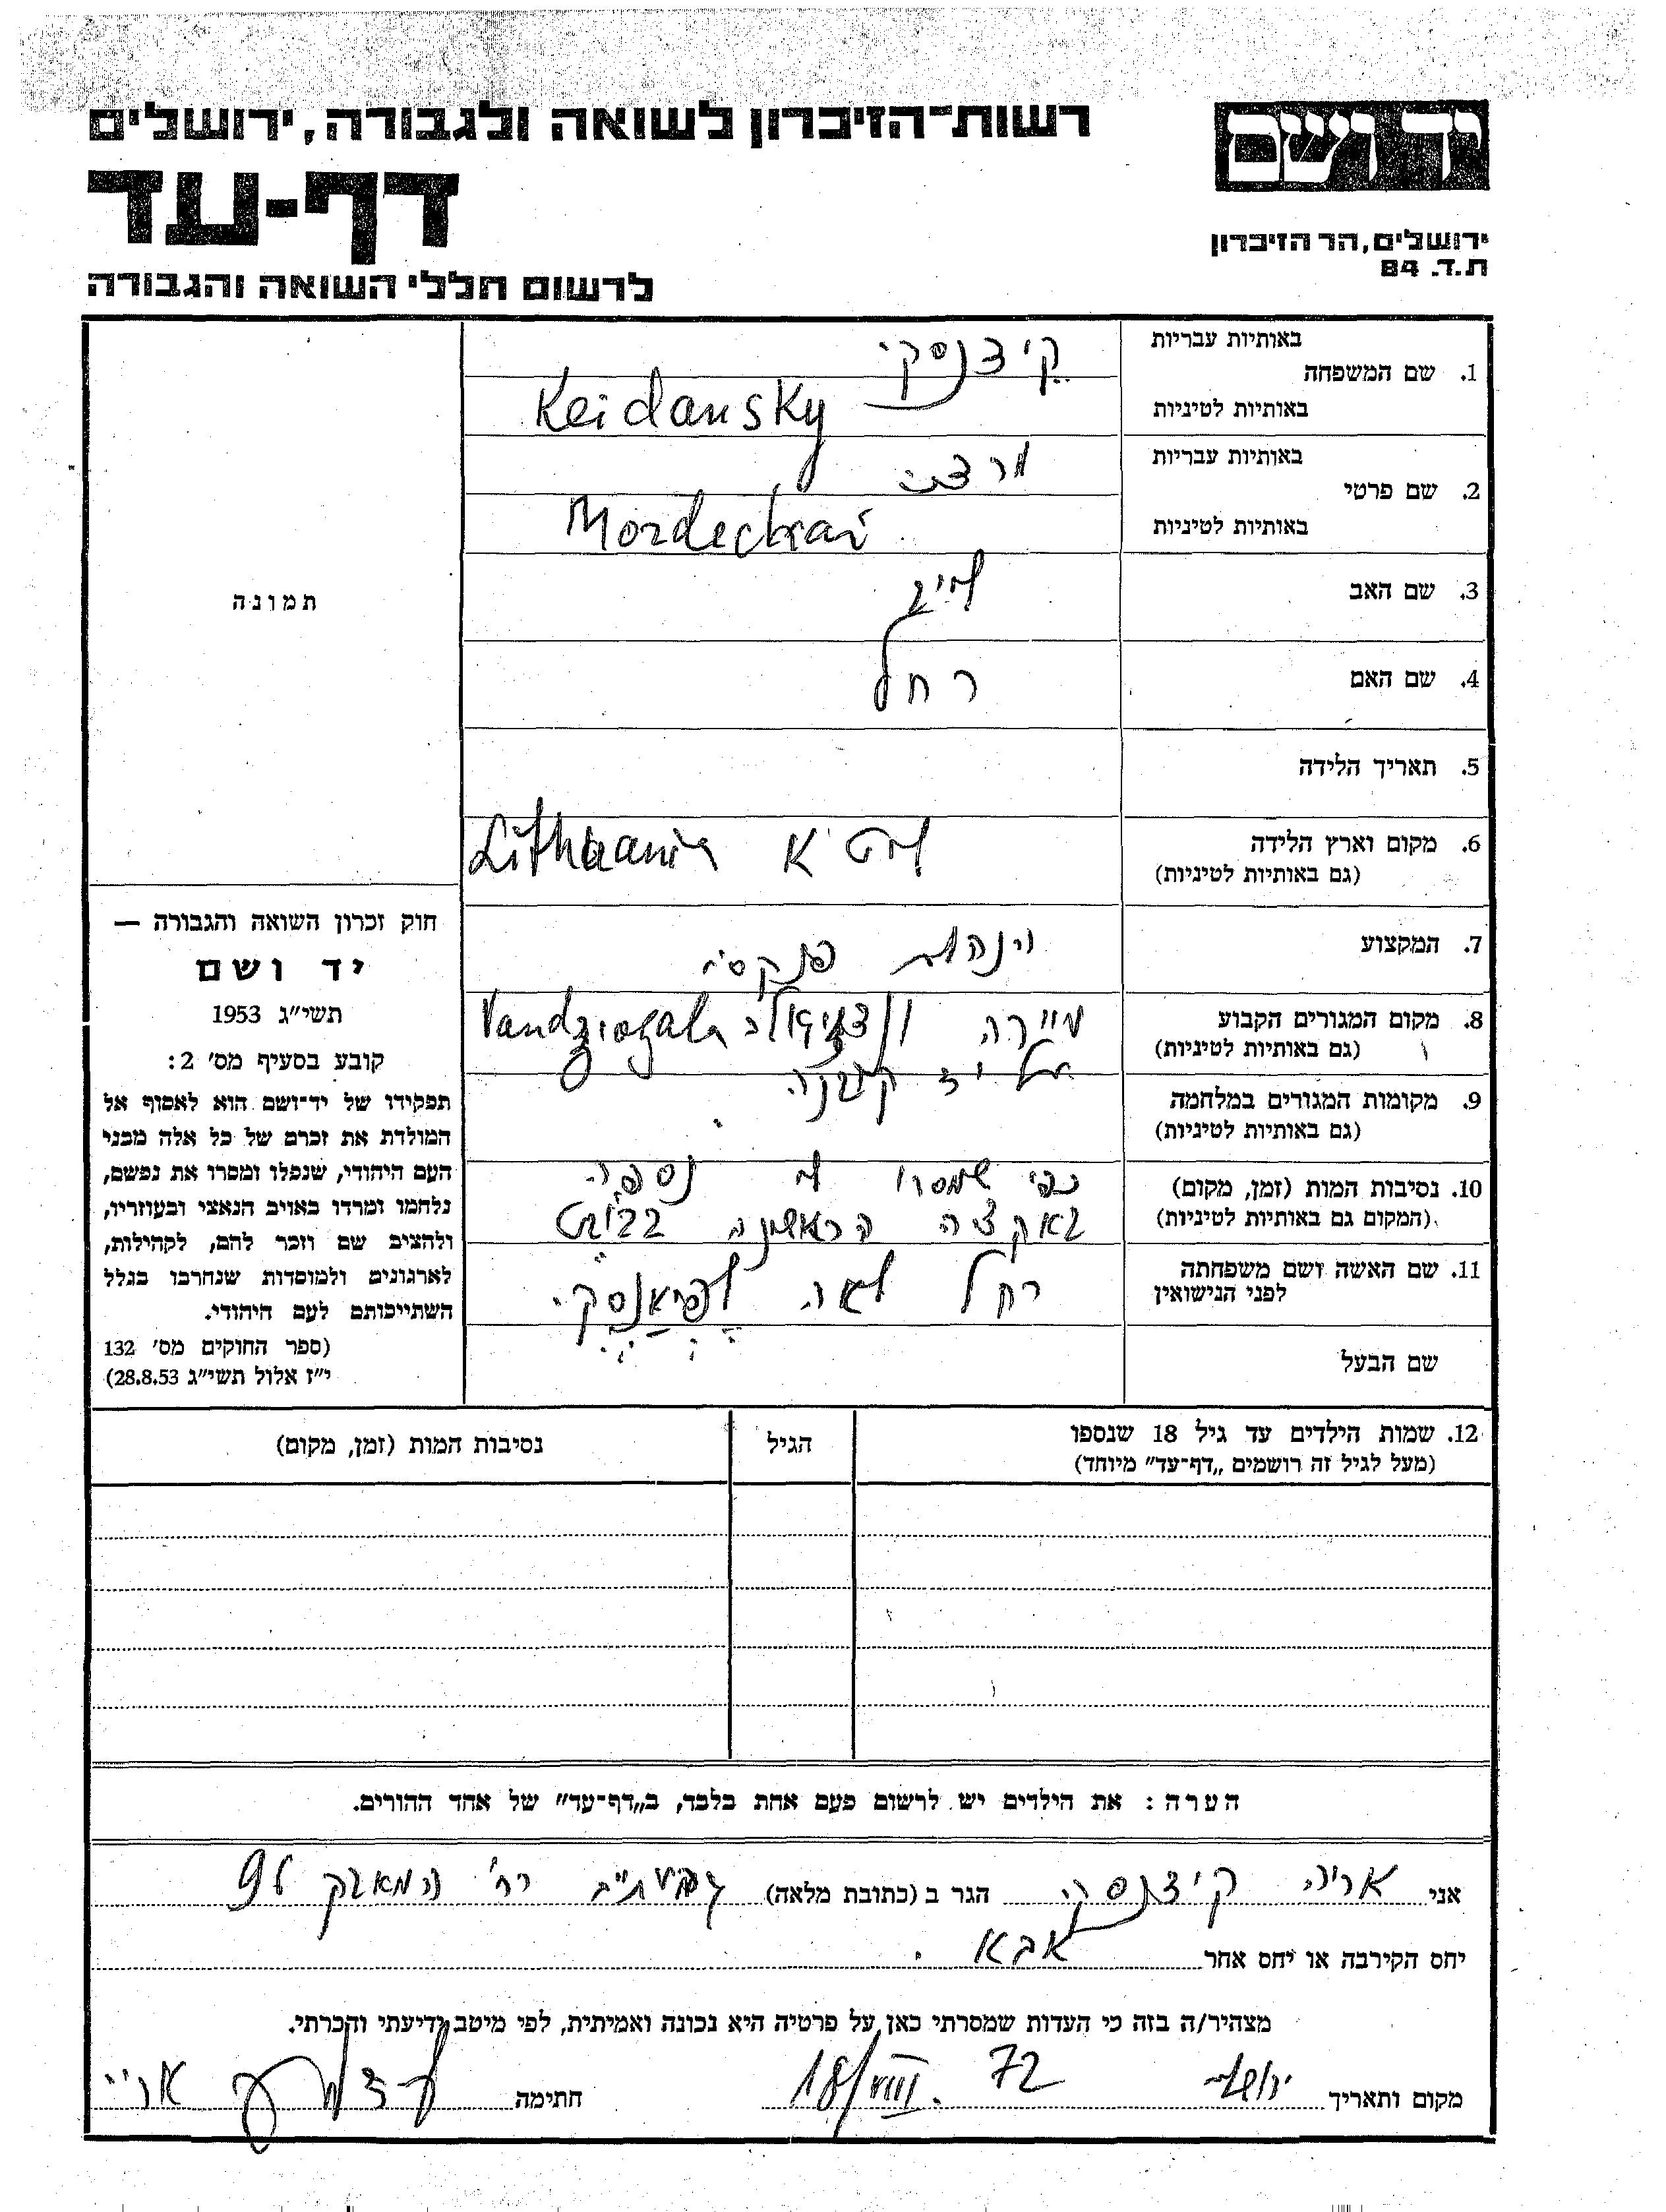 רשות־הזיכרון לשואה ולגבורה, ירושלים
יד ושם
דף-עד
ירושלים, הר הזיכרון
ת.ד. 84
לרשום חללי השואה והגבורה
באותיות עבריות
קידנסקי
1. שם המשפחה
באותיות לטיניות
Keidansky
באותיות עבריות
מרדכי
2. שם פרטי
באותיות לטיניות
Mordechai
3. שם האב
4. שם האם
רחל
תמונה
5. תאריך הלידה
6. מקום וארץ הלידה
(גם באותיות לטיניות)
ליטא Lithuania
7. המקצוע
פנקסי
8. מקום המגורים הקבוע
(גם באותיות לטיניות)
Vandziogala
9. מקומות המגורים במלחמה
(גם באותיות לטיניות)
על יד קובנה.
10. נסיבות המות (זמן, מקום)
(המקום גם באותיות לטיניות)
כפי שמסרו לי נספה
באקציה הראשונה
11. שם האשה ושם משפחתה
לפני הנישואין
רחל לאה
שם הבעל
חוק זכרון השואה והגבורה —
יד ושם
תשי״ג 1953
קובע בסעיף מס׳ 2:
תפקידו של יד־ושם הוא לאסוף אל
המולדת את זכרם של כל אלה מבני
העם היהודי, שנפלו ומסרו את נפשם,
נלחמו ומרדו באויב הנאצי ובעוזריו,
ולהציב שם וזכר להם, לקהילות,
לארגונים ולמוסדות שנחרבו בגלל
השתייכותם לעם היהודי.
(ספר החוקים מס׳ 132
י״ז אלול תשי״ג 28.8.53)
12. שמות הילדים עד גיל 18 שנספו
(מעל לגיל זה רושמים „דף־עד״ מיוחד)
הגיל
נסיבות המות (זמן, מקום)
הערה: את הילדים יש לרשום פעם אחת בלבד, ב„דף־עד״ של אחד ההורים.
אני אריה קידנסקי הגר ב (כתובת מלאה) גבעתיים רח׳ המאבק
יחס הקירבה או יחס אחר אבא.
מצהיר/ה בזה כי העדות שמסרתי כאן על פרטיה היא נכונה ואמיתית, לפי מיטב ידיעתי והכרתי.
מקום ותאריך 18/VIII. 72 חתימה